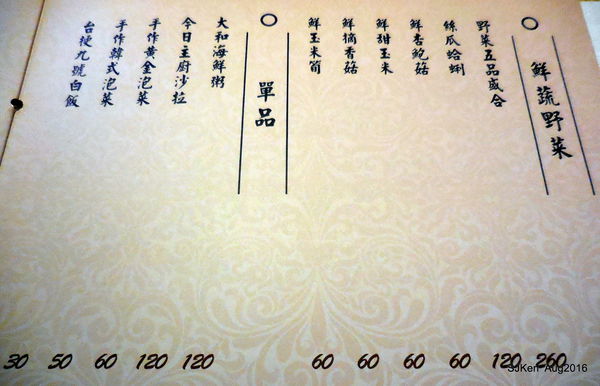 鮮蔬野菜
野菜五品盛合 260
絲瓜蛤蜊 120
鮮杏鮑菇 60
鮮甜玉米 60
鮮摘香菇 60
鮮玉米筍 60
單品
大和海鮮粥 120
今日主廚沙拉 120
手作黃金泡菜 60
手作韓式泡菜 50
台梗九號白飯 30
SJKen Aug2016